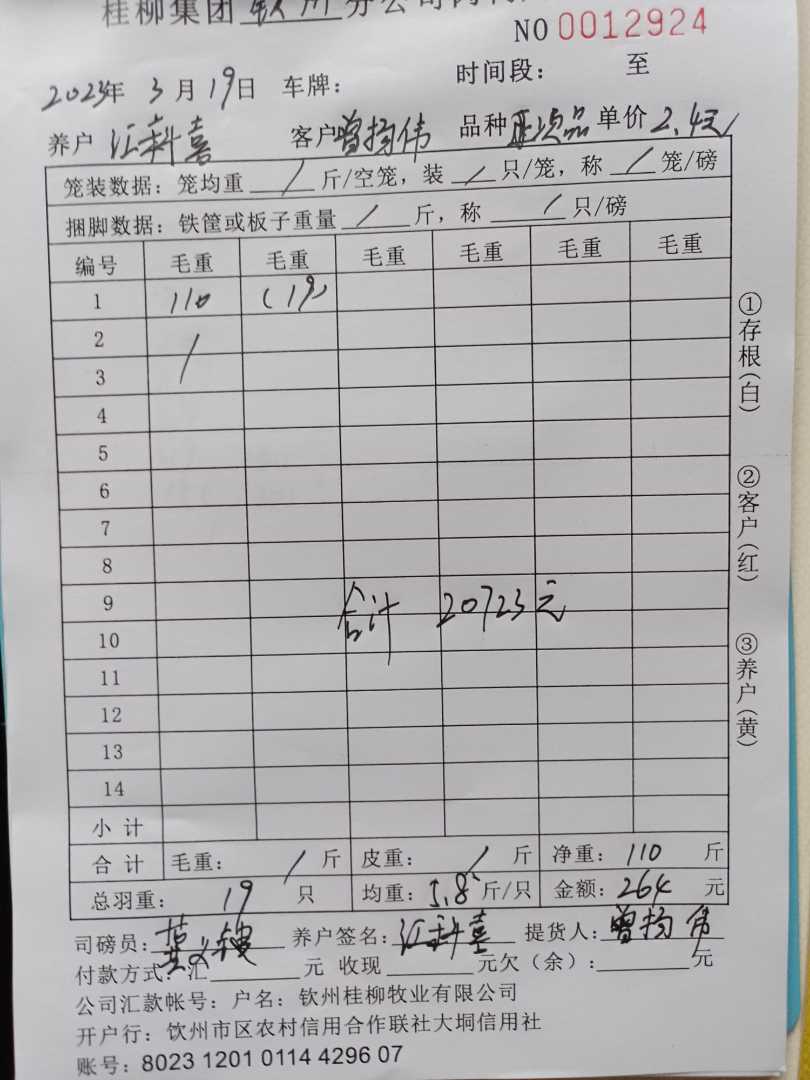 桂柳集团 钦州 分公司
NO 0012924
2023年 3月19日 车牌: 时间段: 至
养户 江科喜 客户 曾扬伟 品种 次品 单价 2.4元/
笼装数据: 笼均重 / 斤/空笼, 装 / 只/笼, 称 / 笼/磅
捆脚数据: 铁筐或板子重量 / 斤, 称 / 只/磅
编号 毛重 毛重 毛重 毛重 毛重 毛重
1 110 (19)
2 /
3
4
5
6
7
8
9 合计 20723元
10
11
12
13
14
小计
合计 毛重: / 斤 皮重: / 斤 净重: 110 斤
总羽重: 19 只 均重: 5.8 斤/只 金额: 264 元
司磅员: 养户签名: 江科喜 提货人: 曾扬伟
付款方式: 汇 元 收现 元欠(余): 元
公司汇款帐号: 户名: 钦州桂柳牧业有限公司
开户行: 钦州市区农村信用合作联社大垌信用社
账号: 8023 1201 0114 4296 07
①存根(白)
②客户(红)
③养户(黄)